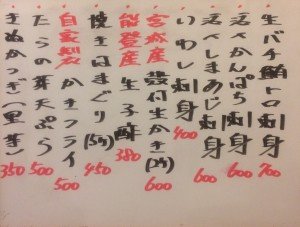 生バチ鮪トロ刺身 700
活〆かんぱち刺身 600
活〆しまあじ刺身 600
いわし刺身 400
宮城産 殻付生かき(2ヶ) 600
能登産 生子酢 380
焼きはまぐり(5ヶ) 450
自家製 かきフライ 500
たらの芽天ぷら 500
きぬかつぎ(里芋) 350